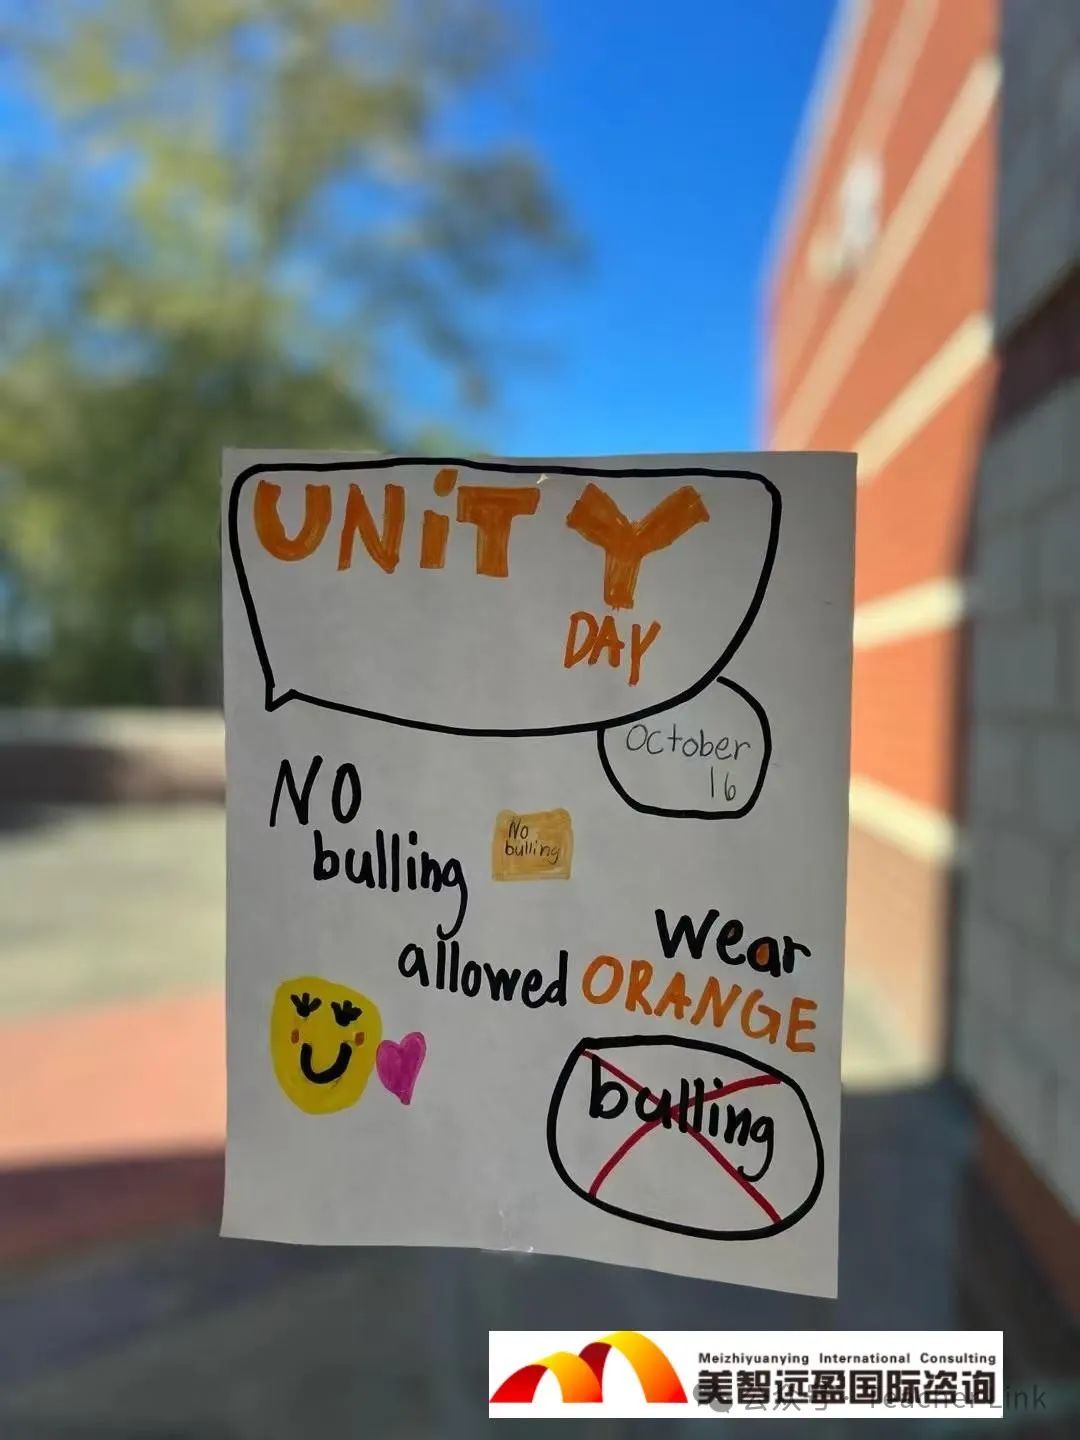 UNiTY
DAY
October
16
NO
bulling
No
bulling
allowed
Wear
ORANGE
bulling
Meizhiyuanying International Consulting
美智远盈国际咨询
Link